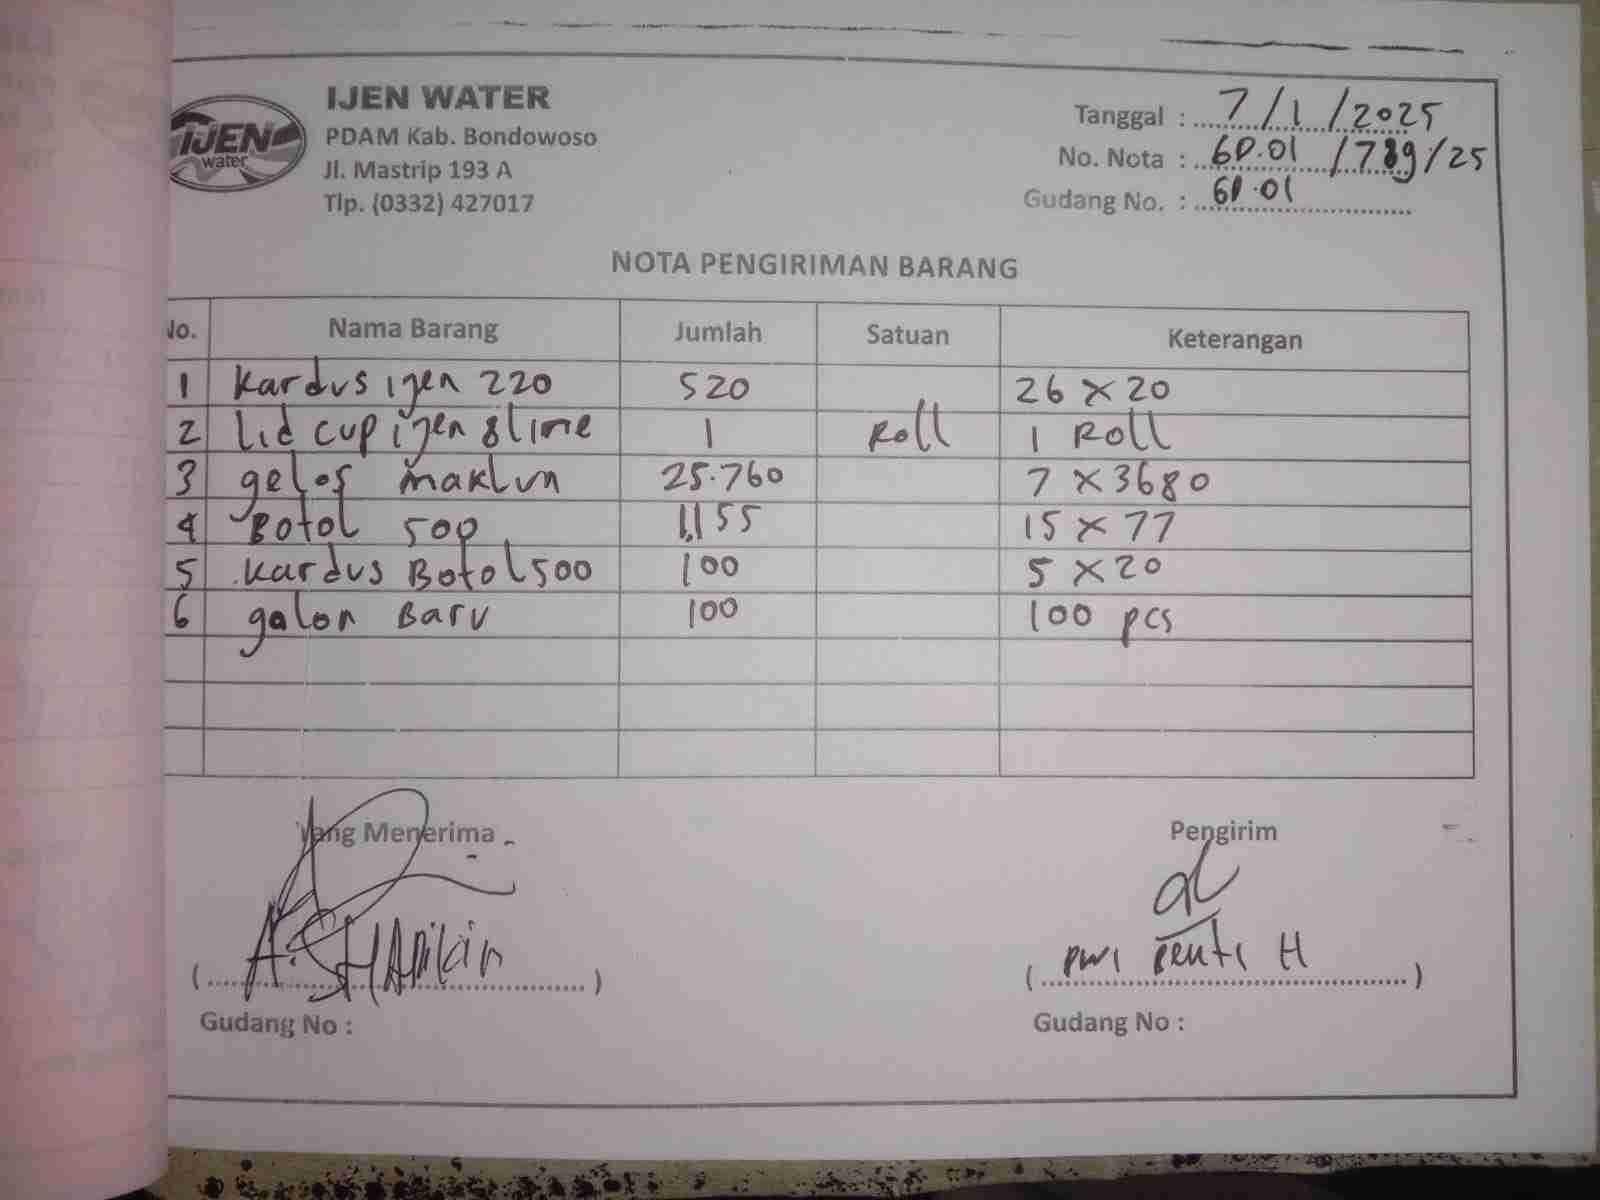 IJEN water
IJEN WATER
PDAM Kab. Bondowoso
Jl. Mastrip 193 A
Tlp. (0332) 427017
Tanggal : 7/1/2025
No. Nota : 60.01 /789/25
Gudang No. : 60.01
NOTA PENGIRIMAN BARANG
No. Nama Barang Jumlah Satuan Keterangan
1 Kardus ijen 220 520 26 x 20
2 Lid cup ijen 8 line 1 Roll 1 Roll
3 gelas maklun 25.760 7 x 3680
4 Botol 500 1.155 15 x 77
5 Kardus Botol 500 100 5 x 20
6 galon Baru 100 100 pcs
Yang Menerima Pengirim
(A. ) ( H )
Gudang No : Gudang No :